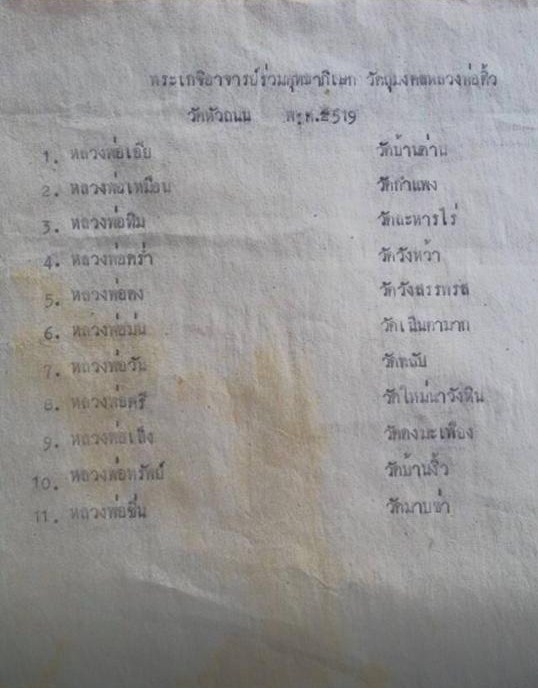 พระเกจิอาจารย์ร่วมพุทธาภิเษก วัตถุมงคลหลวงพ่อคิ้ว
วัดหัวถนน พ.ศ.2519
1. หลวงพ่อเฮีย วัดบ้านด่าน
2. หลวงพ่อเหมือน วัดกำแพง
3. หลวงพ่อทิม วัดละหารไร่
4. หลวงพ่อคร่ำ วัดวังหว้า
5. หลวงพ่อคง วัดวังสรรพรส
6. หลวงพ่อม่น วัดเนินตามาก
7. หลวงพ่อวัน
8. หลวงพ่อศรี วัดใหม่นาวังหิน
9. หลวงพ่อเส็ง วัดดงมะเฟือง
10. หลวงพ่อทรัพย์ วัดบ้านงิ้ว
11. หลวงพ่อชื่น วัดมาบข่า